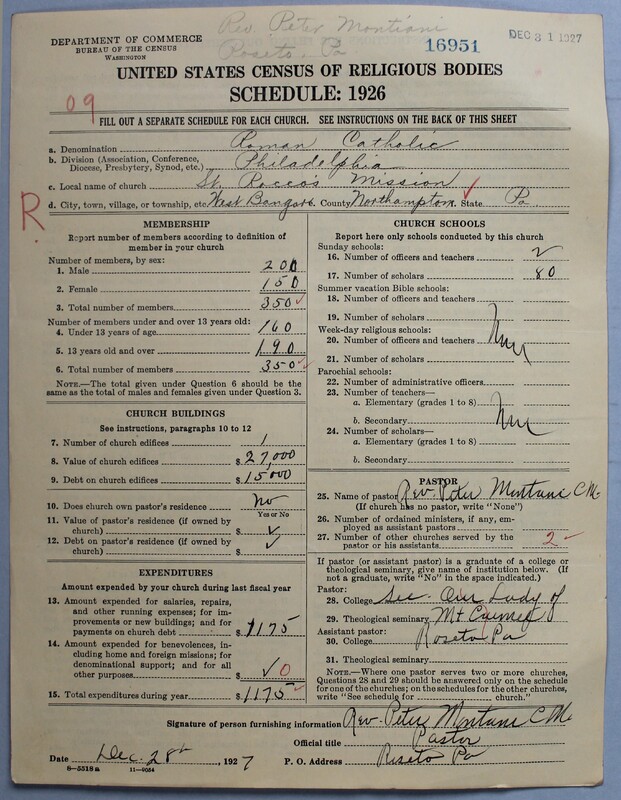 Rev. Peter Montiani
Roseto, Pa
DEPARTMENT OF COMMERCE
BUREAU OF THE CENSUS
WASHINGTON
16951
DEC 31 1927
UNITED STATES CENSUS OF RELIGIOUS BODIES
SCHEDULE: 1926
09
FILL OUT A SEPARATE SCHEDULE FOR EACH CHURCH. SEE INSTRUCTIONS ON THE BACK OF THIS SHEET
a. Denomination Roman Catholic
b. Division (Association, Conference, Diocese, Presbytery, Synod, etc.) Philadelphia
c. Local name of church St. Rocco's Mission
d. City, town, village, or township, etc. West Bangor County Northampton State Pa.
R.
MEMBERSHIP
Report number of members according to definition of member in your church
Number of members, by sex:
1. Male 200
2. Female 150
3. Total number of members 350
Number of members under and over 13 years old:
4. Under 13 years of age 160
5. 13 years old and over 190
6. Total number of members 350
NOTE.—The total given under Question 6 should be the same as the total of males and females given under Question 3.
CHURCH BUILDINGS
See instructions, paragraphs 10 to 12
7. Number of church edifices 1
8. Value of church edifices $ 27,000
9. Debt on church edifices $ 15,000
10. Does church own pastor's residence? No
Yes or No
11. Value of pastor's residence (if owned by church) $ ✓
12. Debt on pastor's residence (if owned by church) $ ✓
EXPENDITURES
Amount expended by your church during last fiscal year
13. Amount expended for salaries, repairs, and other running expenses; for improvements or new buildings; and for payments on church debt $ 1175
14. Amount expended for benevolences, including home and foreign missions; for denominational support; and for all other purposes $ ✓ 0
15. Total expenditures during year $ 1175
CHURCH SCHOOLS
Report here only schools conducted by this church
Sunday schools:
16. Number of officers and teachers 2
17. Number of scholars 80
Summer vacation Bible schools:
18. Number of officers and teachers
19. Number of scholars
Week-day religious schools:
20. Number of officers and teachers
21. Number of scholars
Parochial schools:
22. Number of administrative officers
23. Number of teachers—
a. Elementary (grades 1 to 8)
b. Secondary
24. Number of scholars—
a. Elementary (grades 1 to 8)
b. Secondary
PASTOR
25. Name of pastor Rev. Peter Montiani C.M.
(If church has no pastor, write "None")
26. Number of ordained ministers, if any, employed as assistant pastors
27. Number of other churches served by the pastor or his assistants 2
If pastor (or assistant pastor) is a graduate of a college or theological seminary, give name of institution below. (If not a graduate, write "No" in the space indicated.)
Pastor:
28. College See Our Lady of
29. Theological seminary Mt Carmel
Assistant pastor:
30. College Roseto Pa
31. Theological seminary
NOTE.—Where one pastor serves two or more churches, Questions 28 and 29 should be answered only on the schedule for one of the churches; on the schedules for the other churches, write "See schedule for ______ church."
Signature of person furnishing information Rev. Peter Montiani C.M.
Official title Pastor
Date Dec. 28th, 1927 P. O. Address Roseto Pa
8—5518a 11—9054